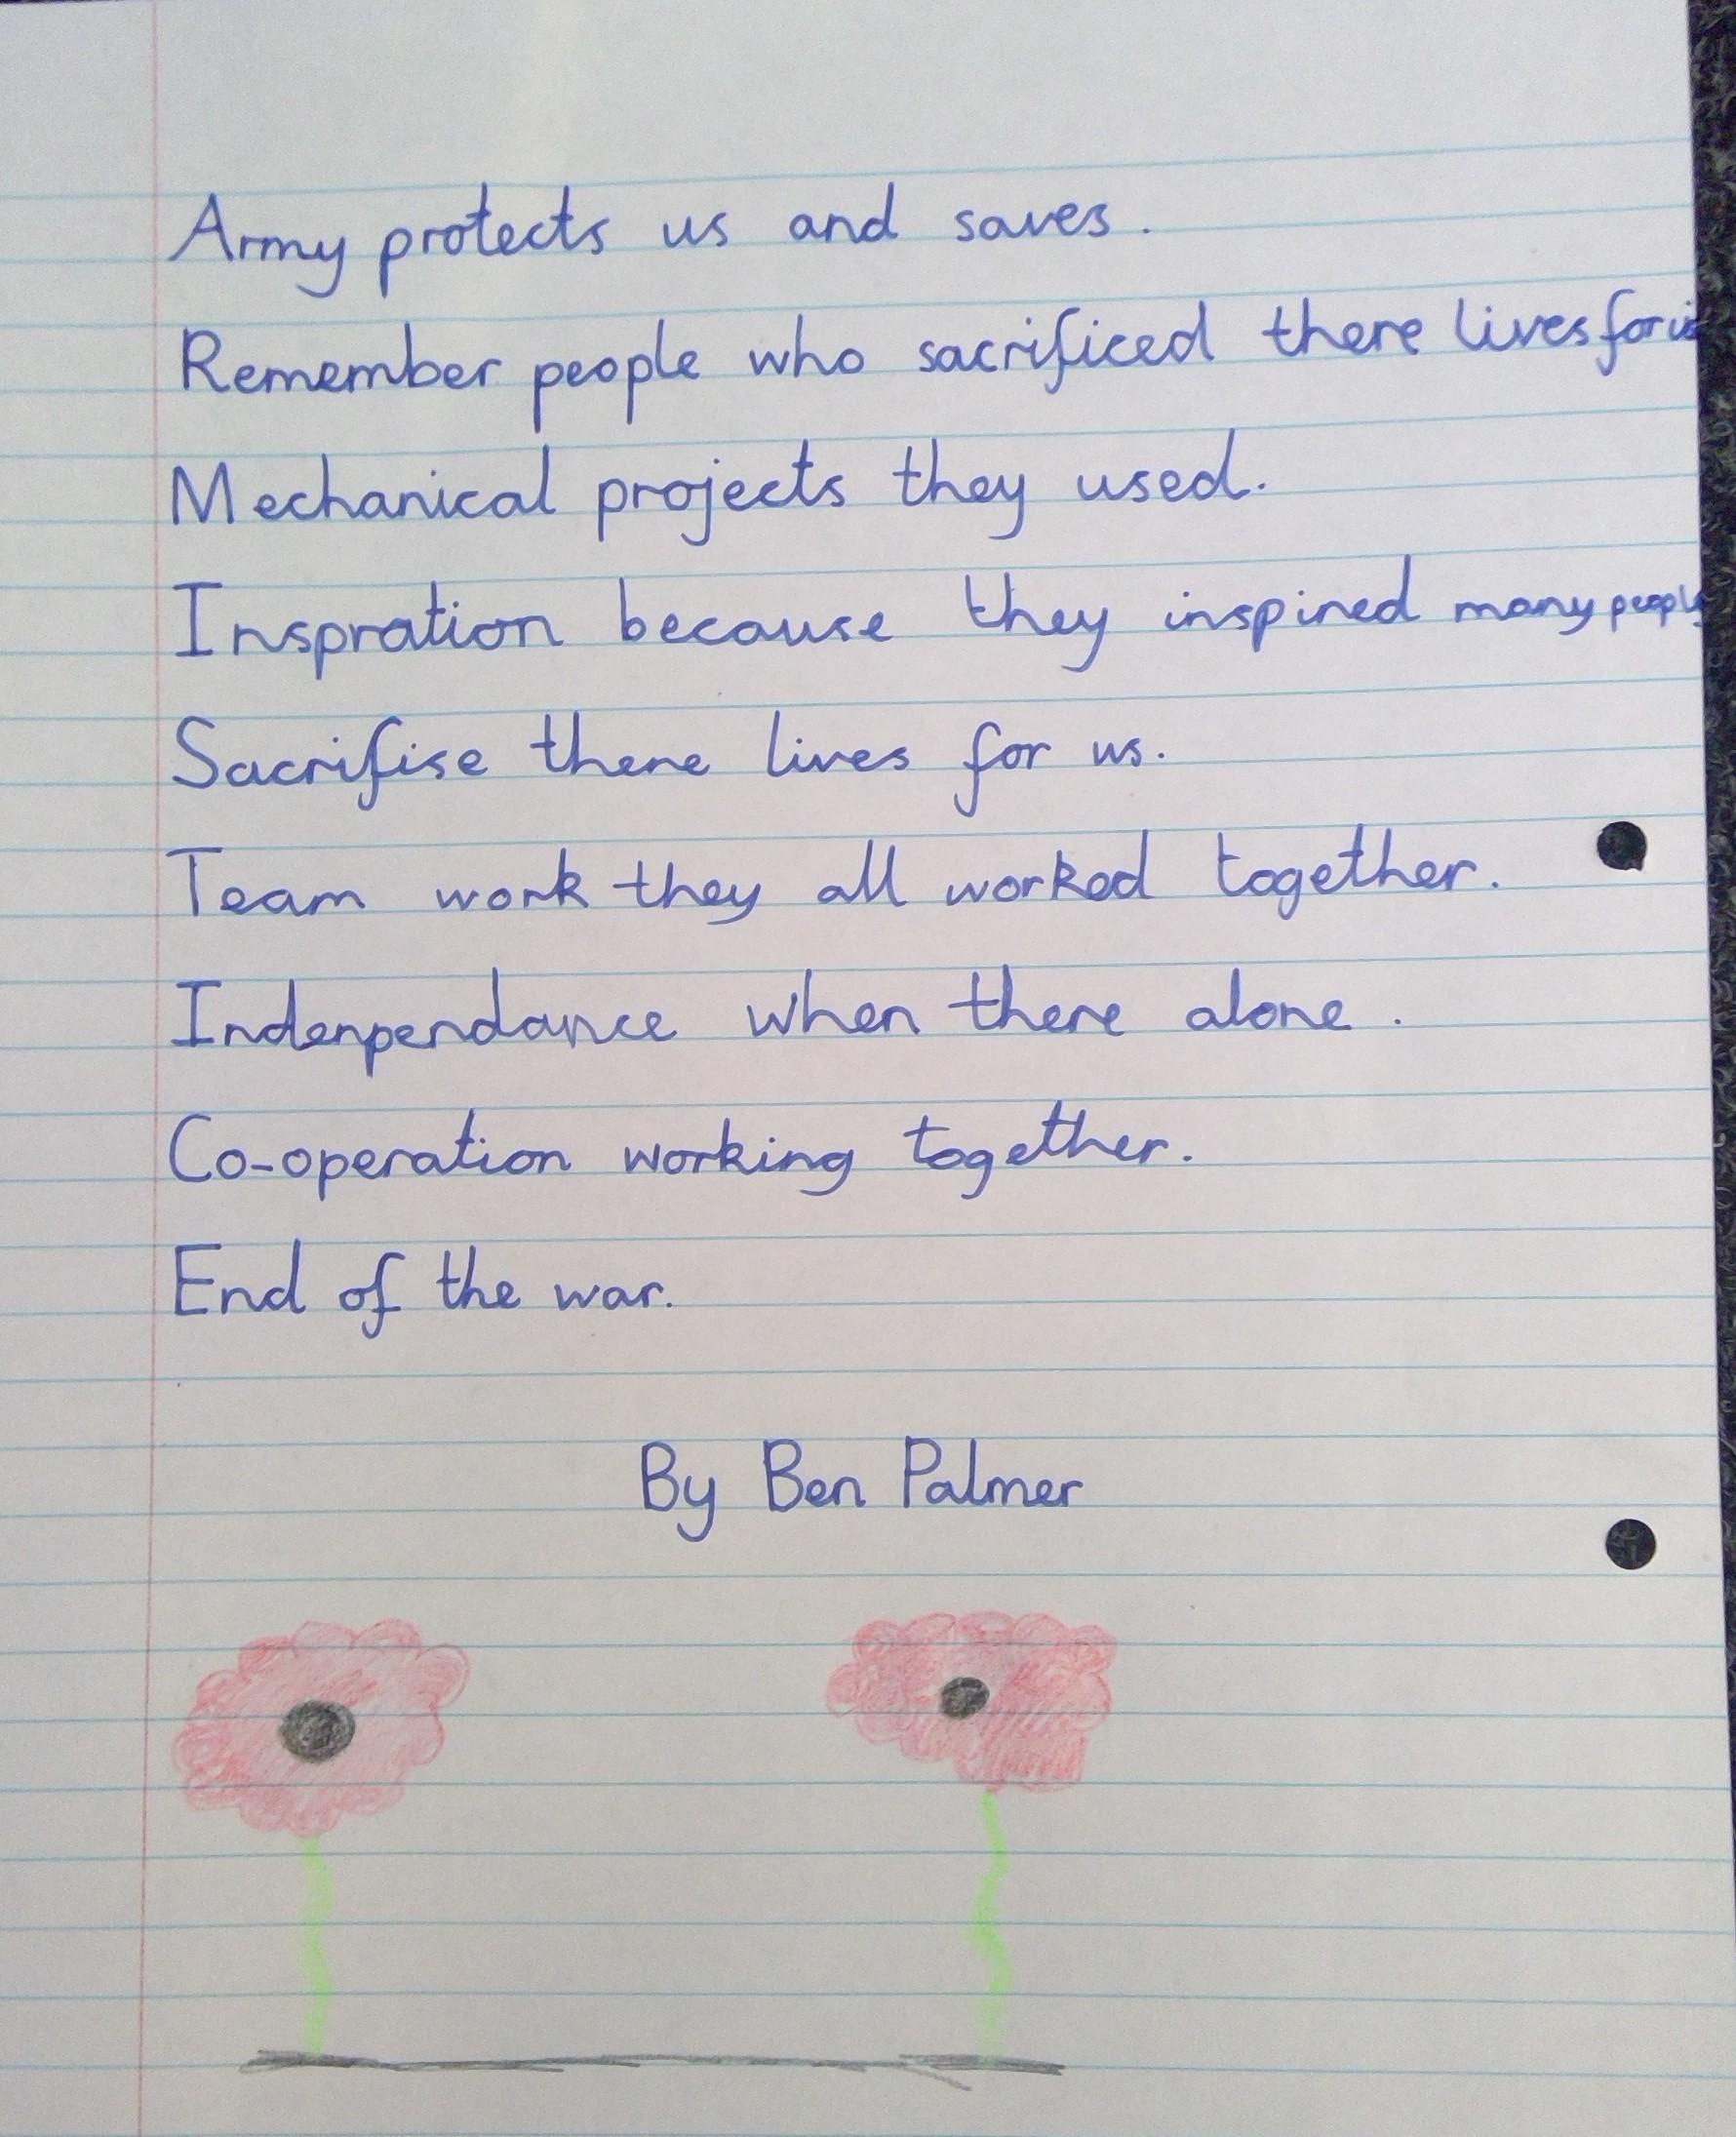 Army protects us and saves.
Remember people who sacrificed there lives for us
Mechanical projects they used.
Inspration because they inspired many people
Sacrifise there lives for us.
Team work they all worked together.
Indenpendance when there alone.
Co-operation working together.
End of the war.
By Ben Palmer